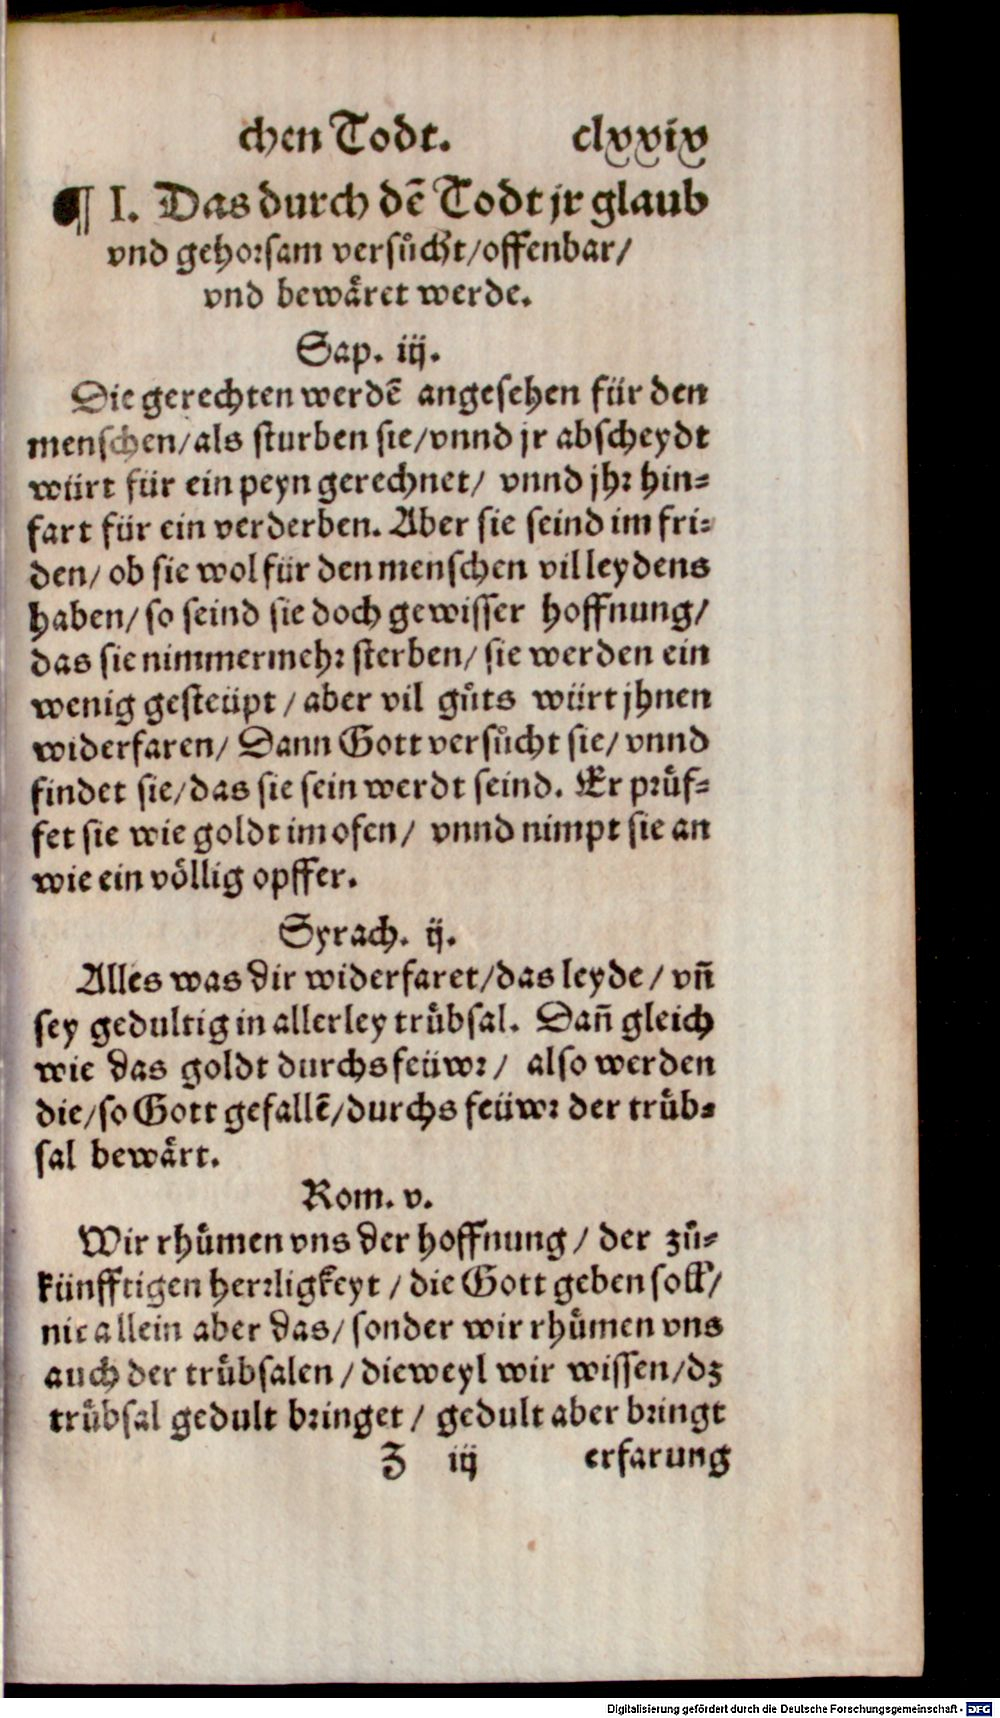 chen Todt. clxxix
¶ I. Das durch dẽ Todt jr glaub
vnd gehorsam versůcht/offenbar/
vnd bewaͤret werde.
Sap. iij.
Die gerechten werdẽ angesehen für den
menschen/als sturben sie/vnnd jr abscheydt
würt für ein peyn gerechnet/ vnnd jhr hin⸗
fart für ein verderben. Aber sie seind im fri⸗
den/ ob sie wol für den menschen vil leydens
haben/ so seind sie doch gewisser hoffnung/
das sie nimmermehr sterben/ sie werden ein
wenig gesteüpt / aber vil gůts würt jhnen
widerfaren/ Dann Gott versůcht sie/ vnnd
findet sie/das sie sein werdt seind. Er pruͤf⸗
fet sie wie goldt im ofen/ vnnd nimpt sie an
wie ein voͤllig opffer.
Syrach. ij.
Alles was dir widerfaret/das leyde / vñ
sey gedultig in allerley truͤbsal. Dañ gleich
wie das goldt durchs feüwr/ also werden
die/so Gott gefallẽ/durchs feüwr der truͤb⸗
sal bewaͤrt.
Rom. v.
Wir rhuͤmen vns der hoffnung / der zů⸗
künfftigen herrligkeyt / die Gott geben soll/
nit allein aber das/ sonder wir rhuͤmen vns
auch der truͤbsalen / dieweyl wir wissen/dz
truͤbsal gedult bringet / gedult aber bringt
Z iij erfarung
Digitalisierung gefördert durch die Deutsche Forschungsgemeinschaft - DFG